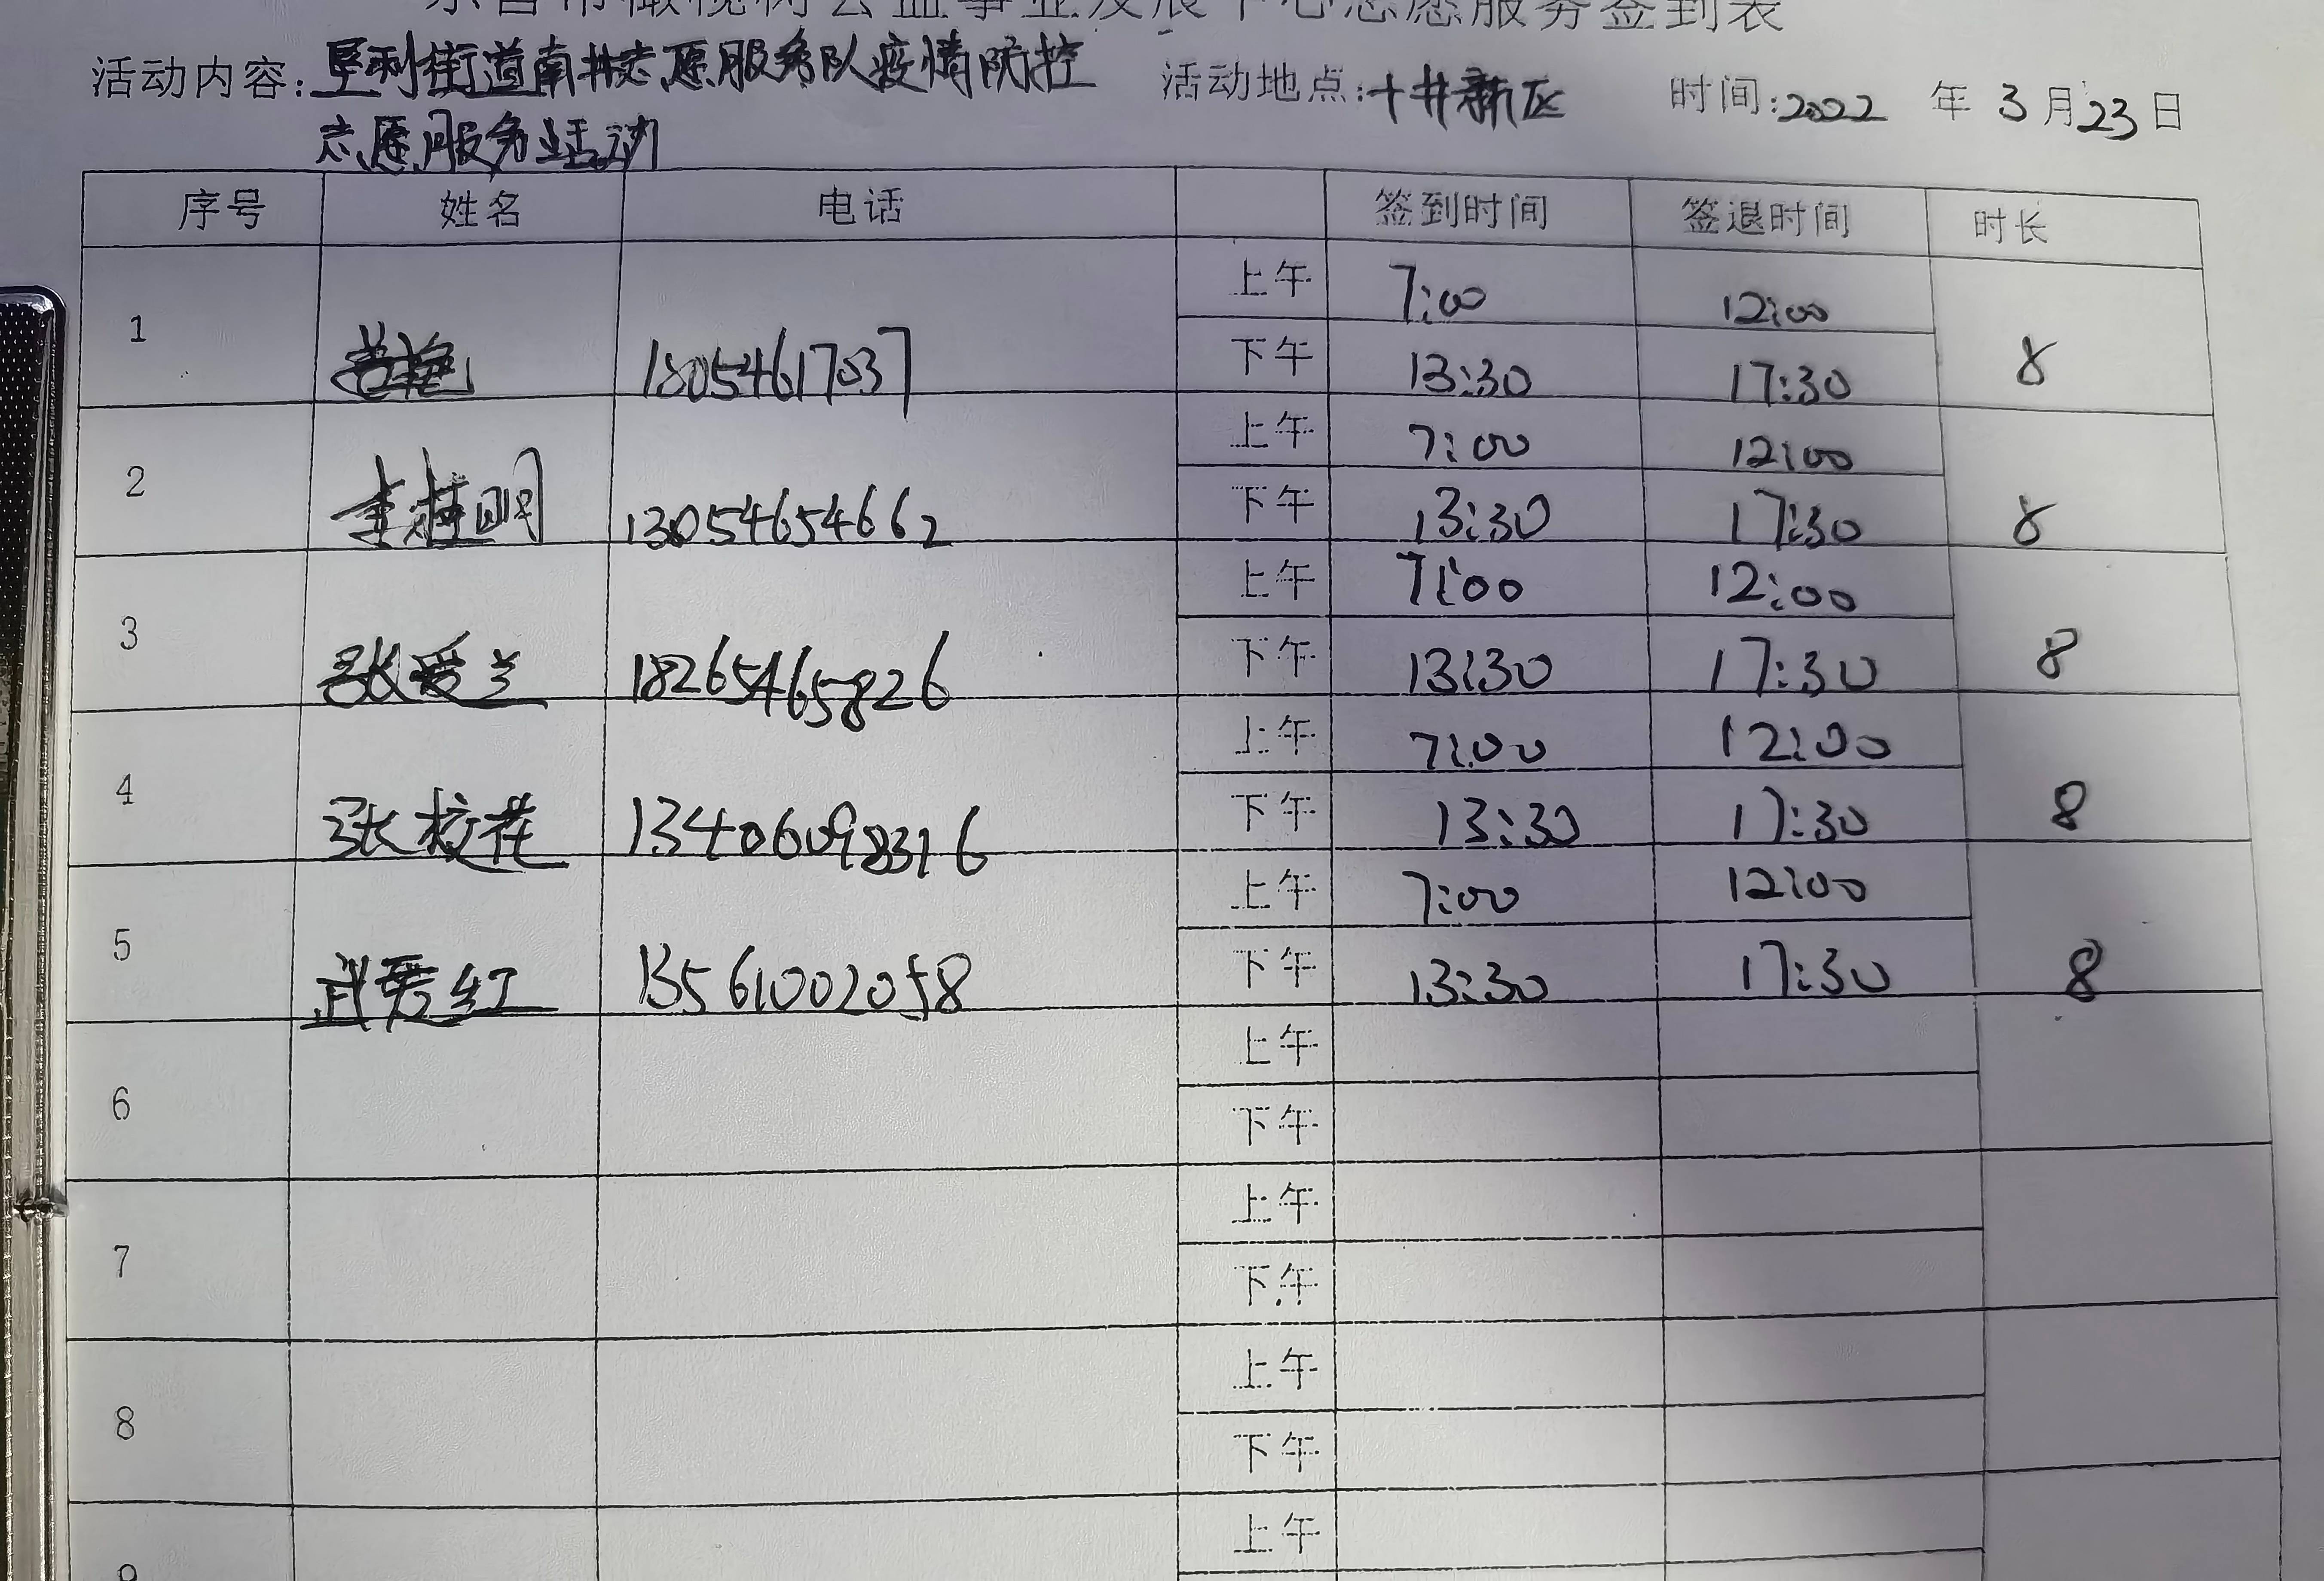 东营市橄榄树公益事业发展中心志愿服务签到表
活动内容:垦利街道南井志愿服务队疫情防控 活动地点:十井新区 时间:2022 年 3月23日
志愿服务活动
序号 姓名 电话 签到时间 签退时间 时长
上午 7:00 12:00
1 18054617037 下午 13:30 17:30 8
上午 7:00 12:00
2 李桂明 13054654662 下午 13:30 17:30 8
上午 7:00 12:00
3 张爱兰 18265465826 下午 13:30 17:30 8
上午 7:00 12:00
4 张校花 13406098316 下午 13:30 17:30 8
上午 7:00 12:00
5 武爱红 13561002058 下午 13:30 17:30 8
上午
6 下午
上午
7 下午
上午
8 下午
上午
9